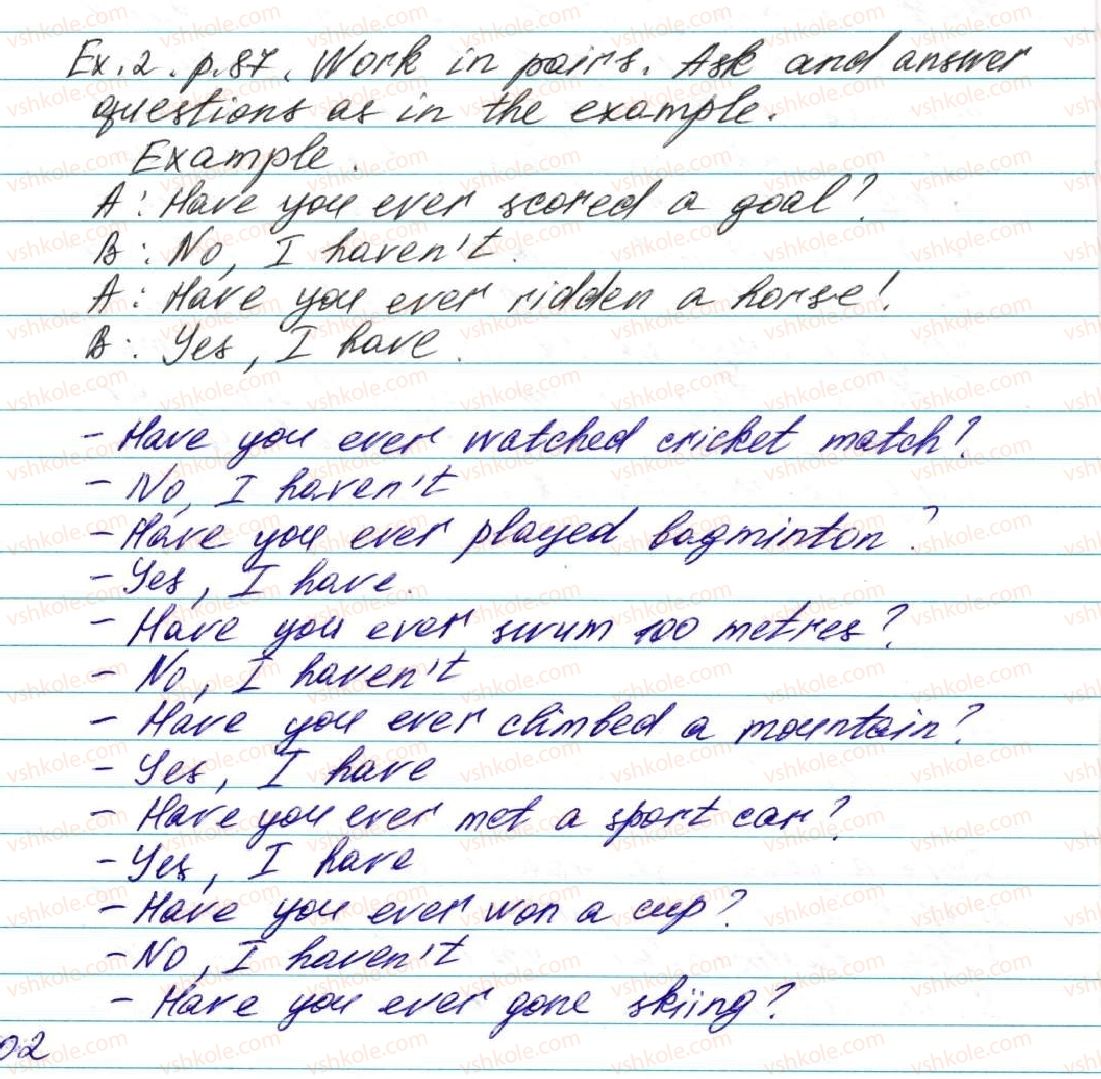 Ex. 2. p. 87. Work in pairs. Ask and answer
questions as in the example.
Example.
A: Have you ever scored a goal?
B: No, I haven't.
A: Have you ever ridden a horse!
B: Yes, I have.
- Have you ever watched cricket match?
- No, I haven't
- Have you ever played bagminton?
- Yes, I have.
- Have you ever swum 100 metres?
- No, I haven't
- Have you ever climbed a mountain?
- Yes, I have
- Have you ever met a sport car?
- Yes, I have
- Have you ever won a cup?
- No, I haven't
- Have you ever gone skiing?
02
vshkole.com